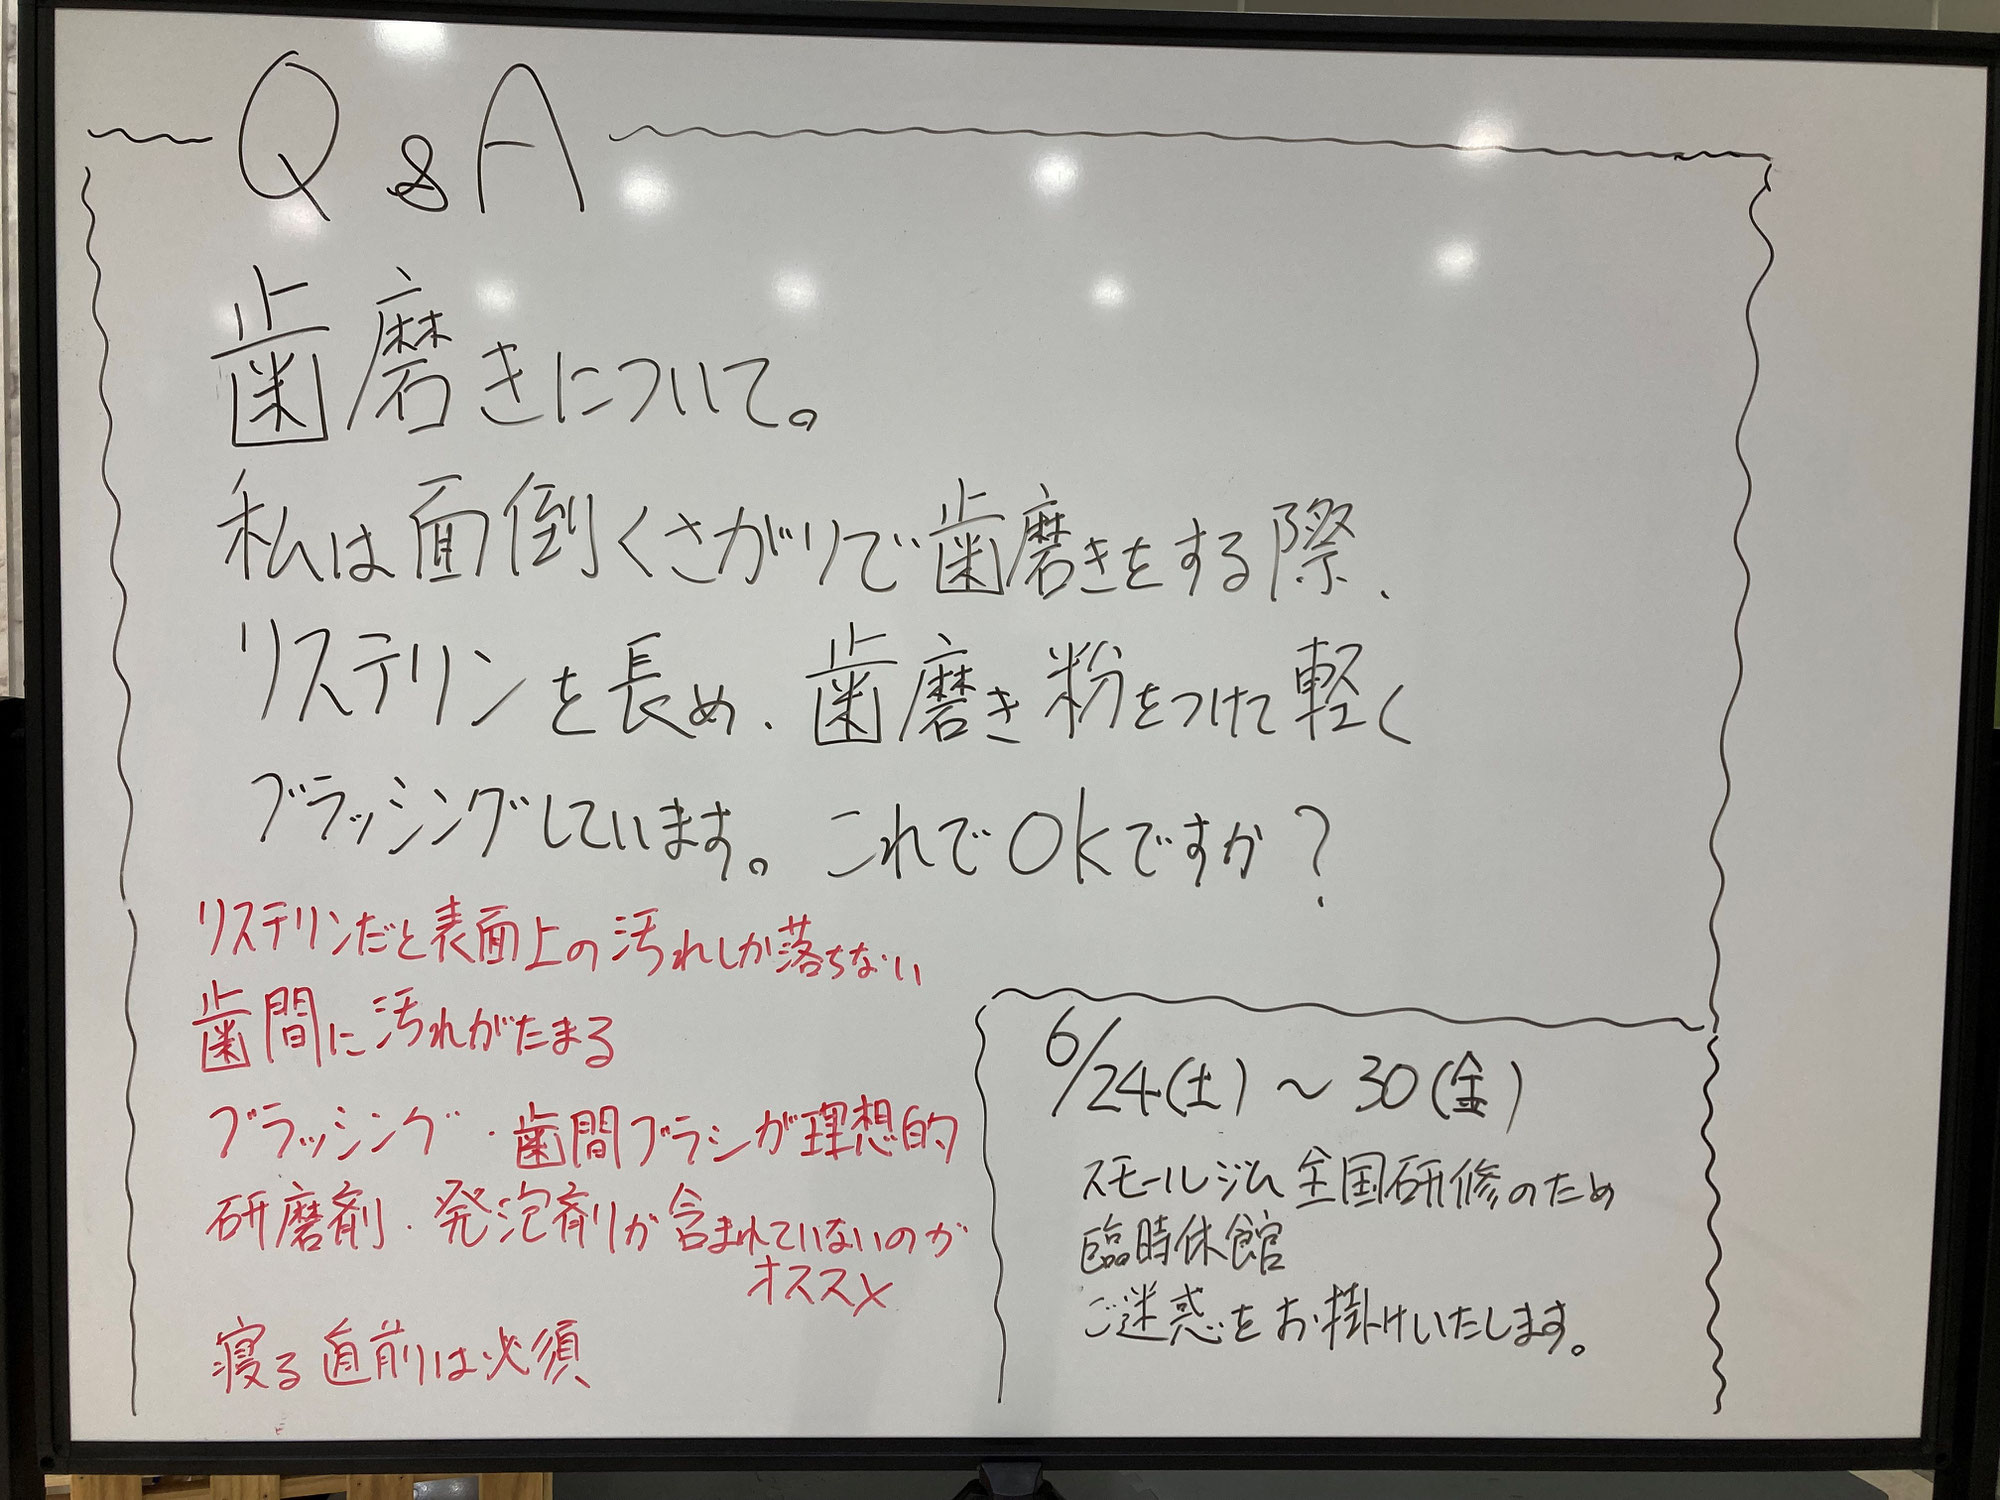 Q&A
歯磨きについて。
私は面倒くさがりで歯磨きをする際、
リステリンを長め、歯磨き粉をつけて軽く
ブラッシングしています。これでOKですか？
リステリンだと表面上の汚れしか落ちない
歯間に汚れがたまる
ブラッシング・歯間ブラシが理想的
研磨剤・発泡剤が含まれていないのが
オススメ
寝る直前は必須
6/24(土)～30(金)
スモールジム全国研修のため
臨時休館
ご迷惑をお掛けいたします。